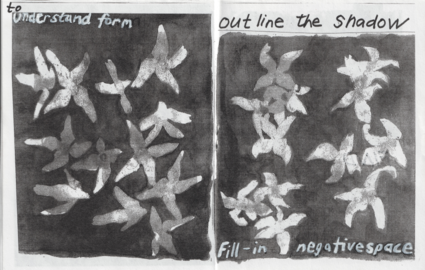 to
understand form
outline the Shadow
fill-in negativespace